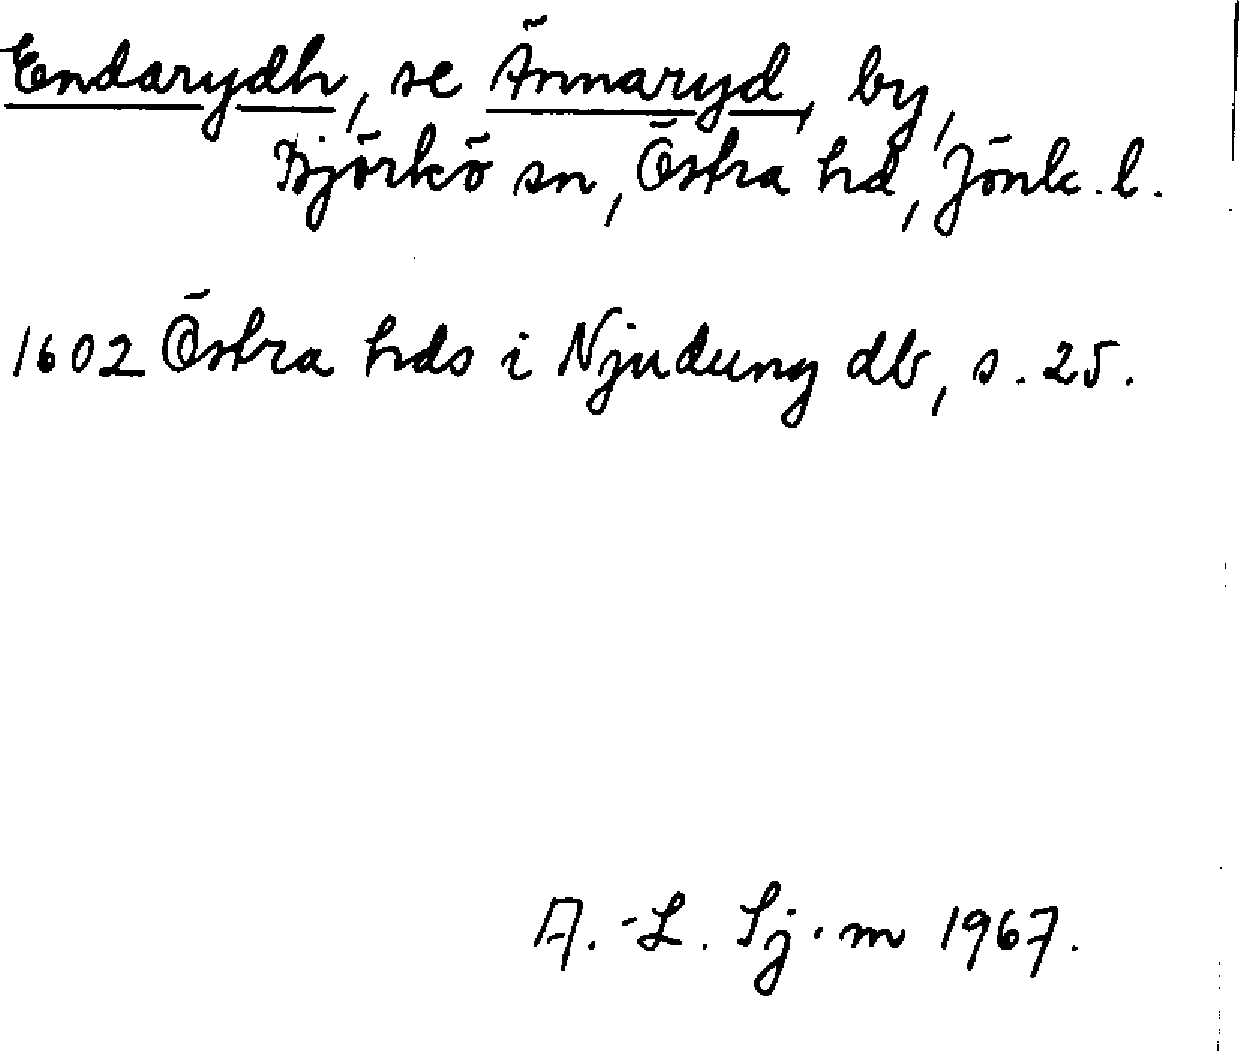 Endarydh, se Ännaryd, by,
Björkö sn, Östra hd, Jönk. l.
1602 Östra hds i Njudung db, s. 25.
A.-L. Sj·m 1967.